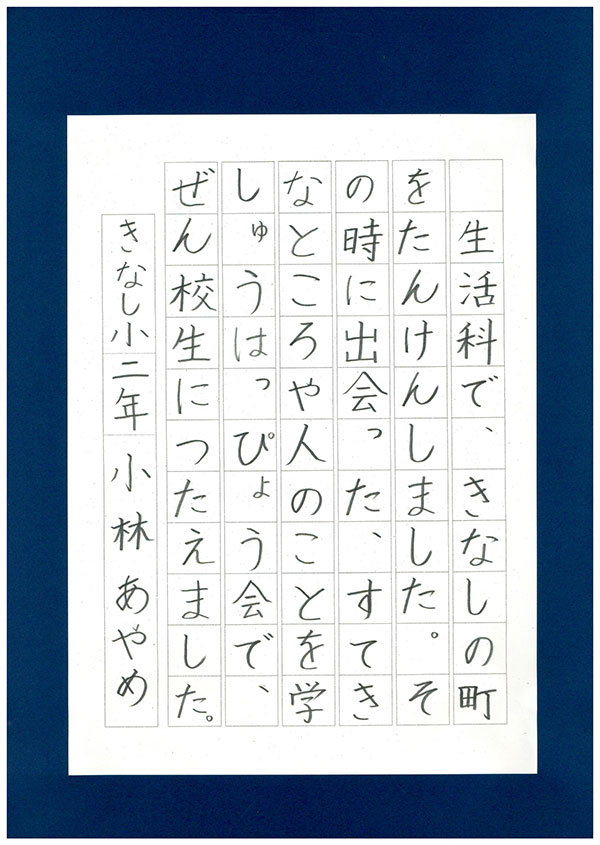 生活科で、きなしの町
をたんけんしました。そ
の時に出会った、すてき
なところや人のことを学
しゅうはっぴょう会で、
ぜん校生につたえました。
きなし小二年 小林あやめ